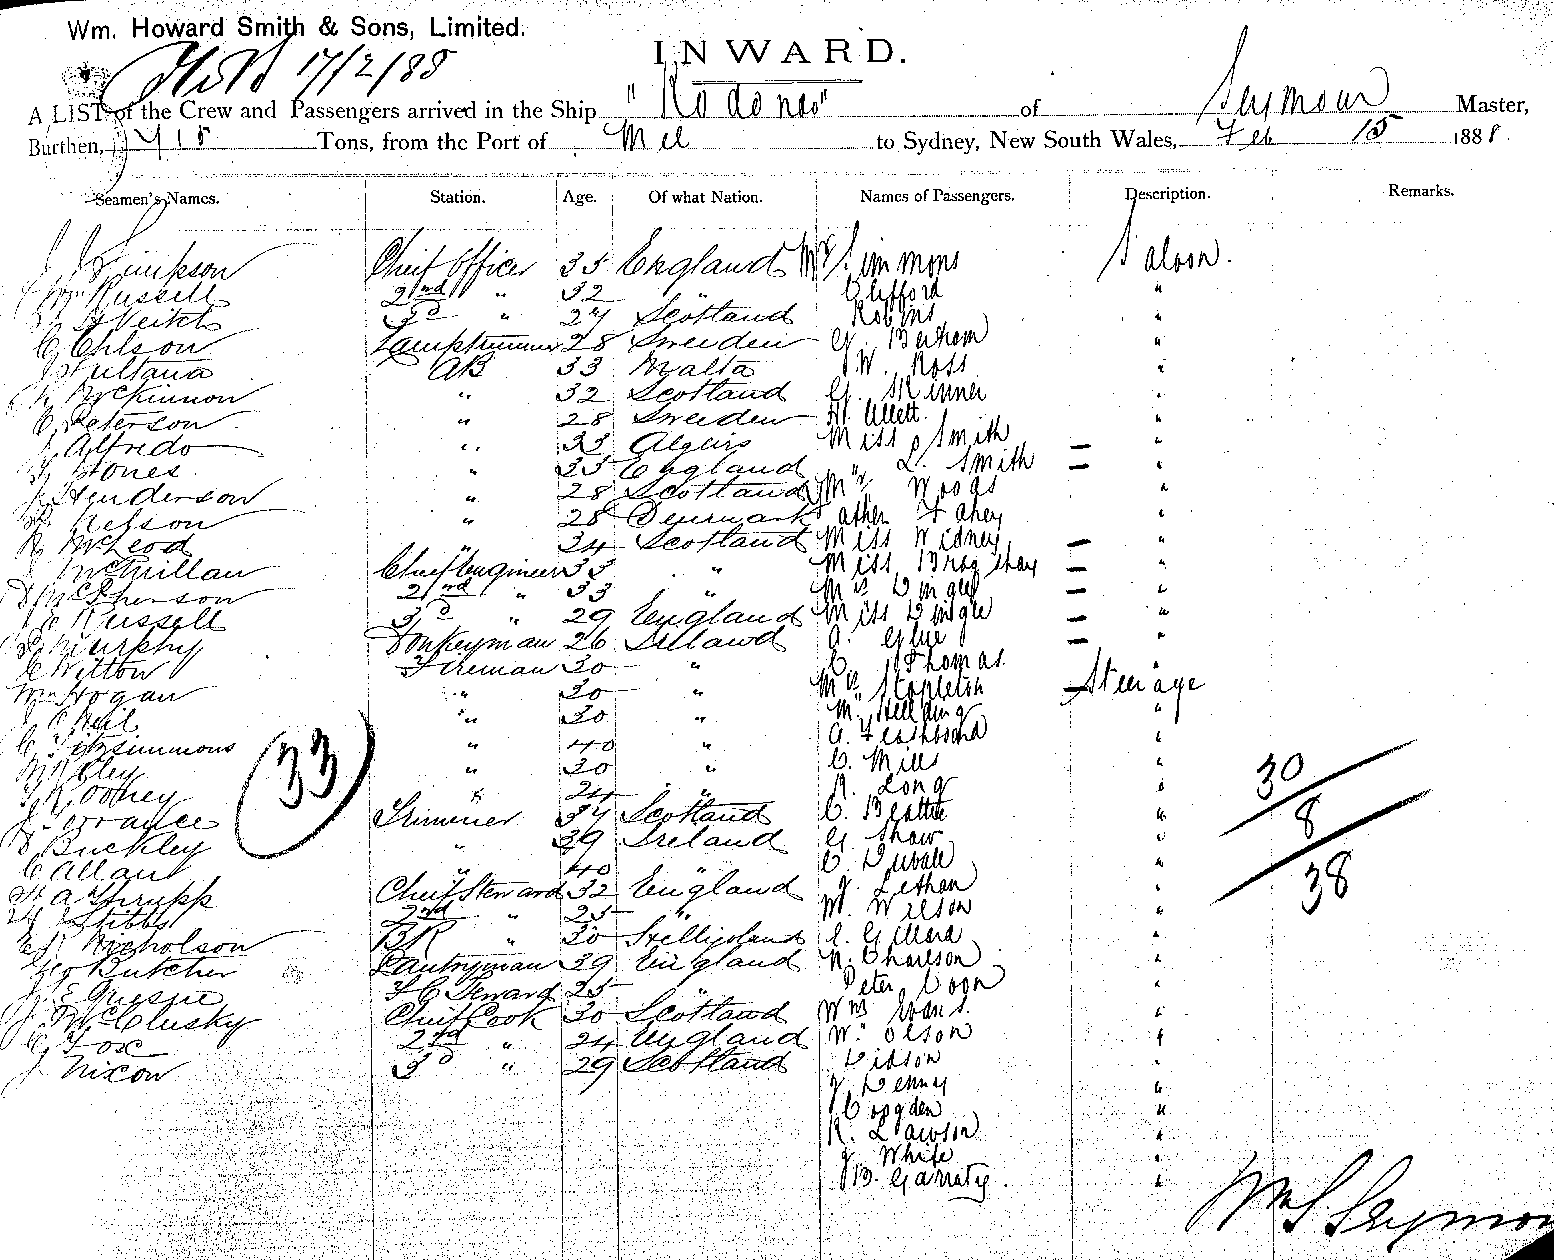 Wm. Howard Smith & Sons, Limited.
17/2/88
INWARD.
A LIST of the Crew and Passengers arrived in the Ship "Rodondo" of Seymour Master,
Burthen, 718 Tons, from the Port of Mel to Sydney, New South Wales, Feb 15 1888
Seamen's Names. Station. Age. Of what Nation. Names of Passengers. Description. Remarks.
J Simpson Chief Officer 35 England Mr Simmons Saloon.
Wm Russell 2nd " 32 " Clifford "
Veitch 3d " 27 Scotland Robins "
C Ohlson Lamptrimmer 28 Sweden G. "
J Sultana AB 33 Malta J W. Ross "
McKinnon " 32 Scotland G. Skinner "
C Peterson " 28 Sweden H. Ullett. "
J Alfredo " 33 Algiers Miss Smith — "
Jones " 35 England " L. Smith — "
J Henderson " 28 Scotland Mr Woods "
Nelson " 28 Denmark Father Fahey "
McLeod " 34 Scotland Miss Widney — "
J McMillan Chief Engineer 33 " Miss — "
D McPherson 2nd " 33 " Mrs Dingle — "
Russell 3d " 29 England Miss Dingle — "
Murphy Donkeyman 26 Ireland A. Glue — "
C Witton Fireman 30 " C. Thomas "
Wm Hogan " 30 " Mrs Stapleton Steerage
J " 30 " M. "
C Fitzsimmons " 40 " A. "
M Riley " 30 " C. Mills "
Rooney " 24 " R. Long "
J Torrance Trimmer 37 Scotland C. Beattie "
D Buckley " 39 Ireland G. Shaw "
C Allan " 40 " C. Duvall "
H A Thrupp Chief Steward 32 England J. Lethan "
Stibbs 2nd " 25 " M. Wilson "
Nicholson BR " 30 Heligoland "
Geo Butcher Pantryman 39 England N. Charlson "
J. E F C Steward 25 Peter Coon "
J McClusky Chief Cook 30 Scotland Wm Evans. "
G Fox 2nd " 24 England W. Olson "
J Nixon 3d " 29 Scotland "
J Denny "
C Cogden "
R. Lawson "
J White "
B. Garraty. "
33
30
8
38
Wm S Seymour